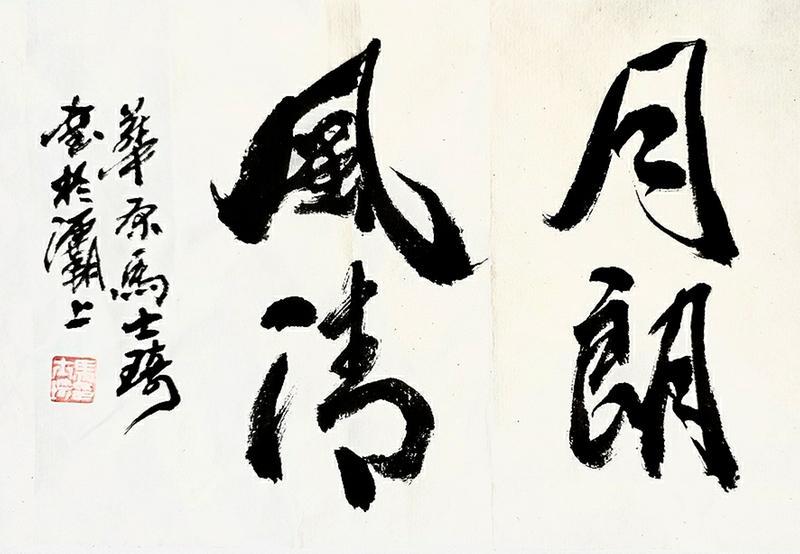 月朗
風清
華原馬士琦
書於灞上